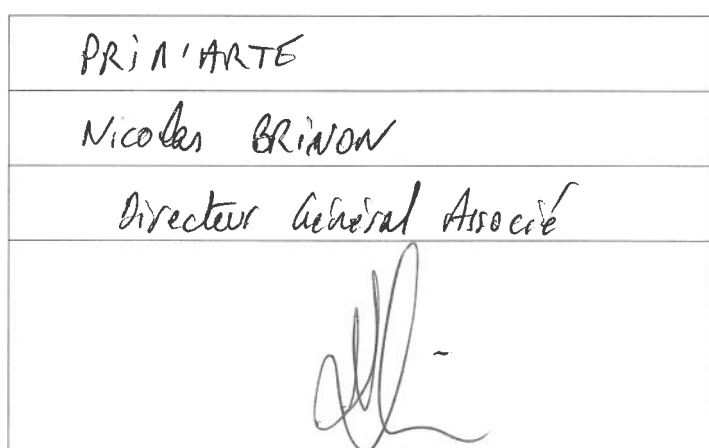 PRIM'ARTE
Nicolas BRINON
Directeur Général Associé